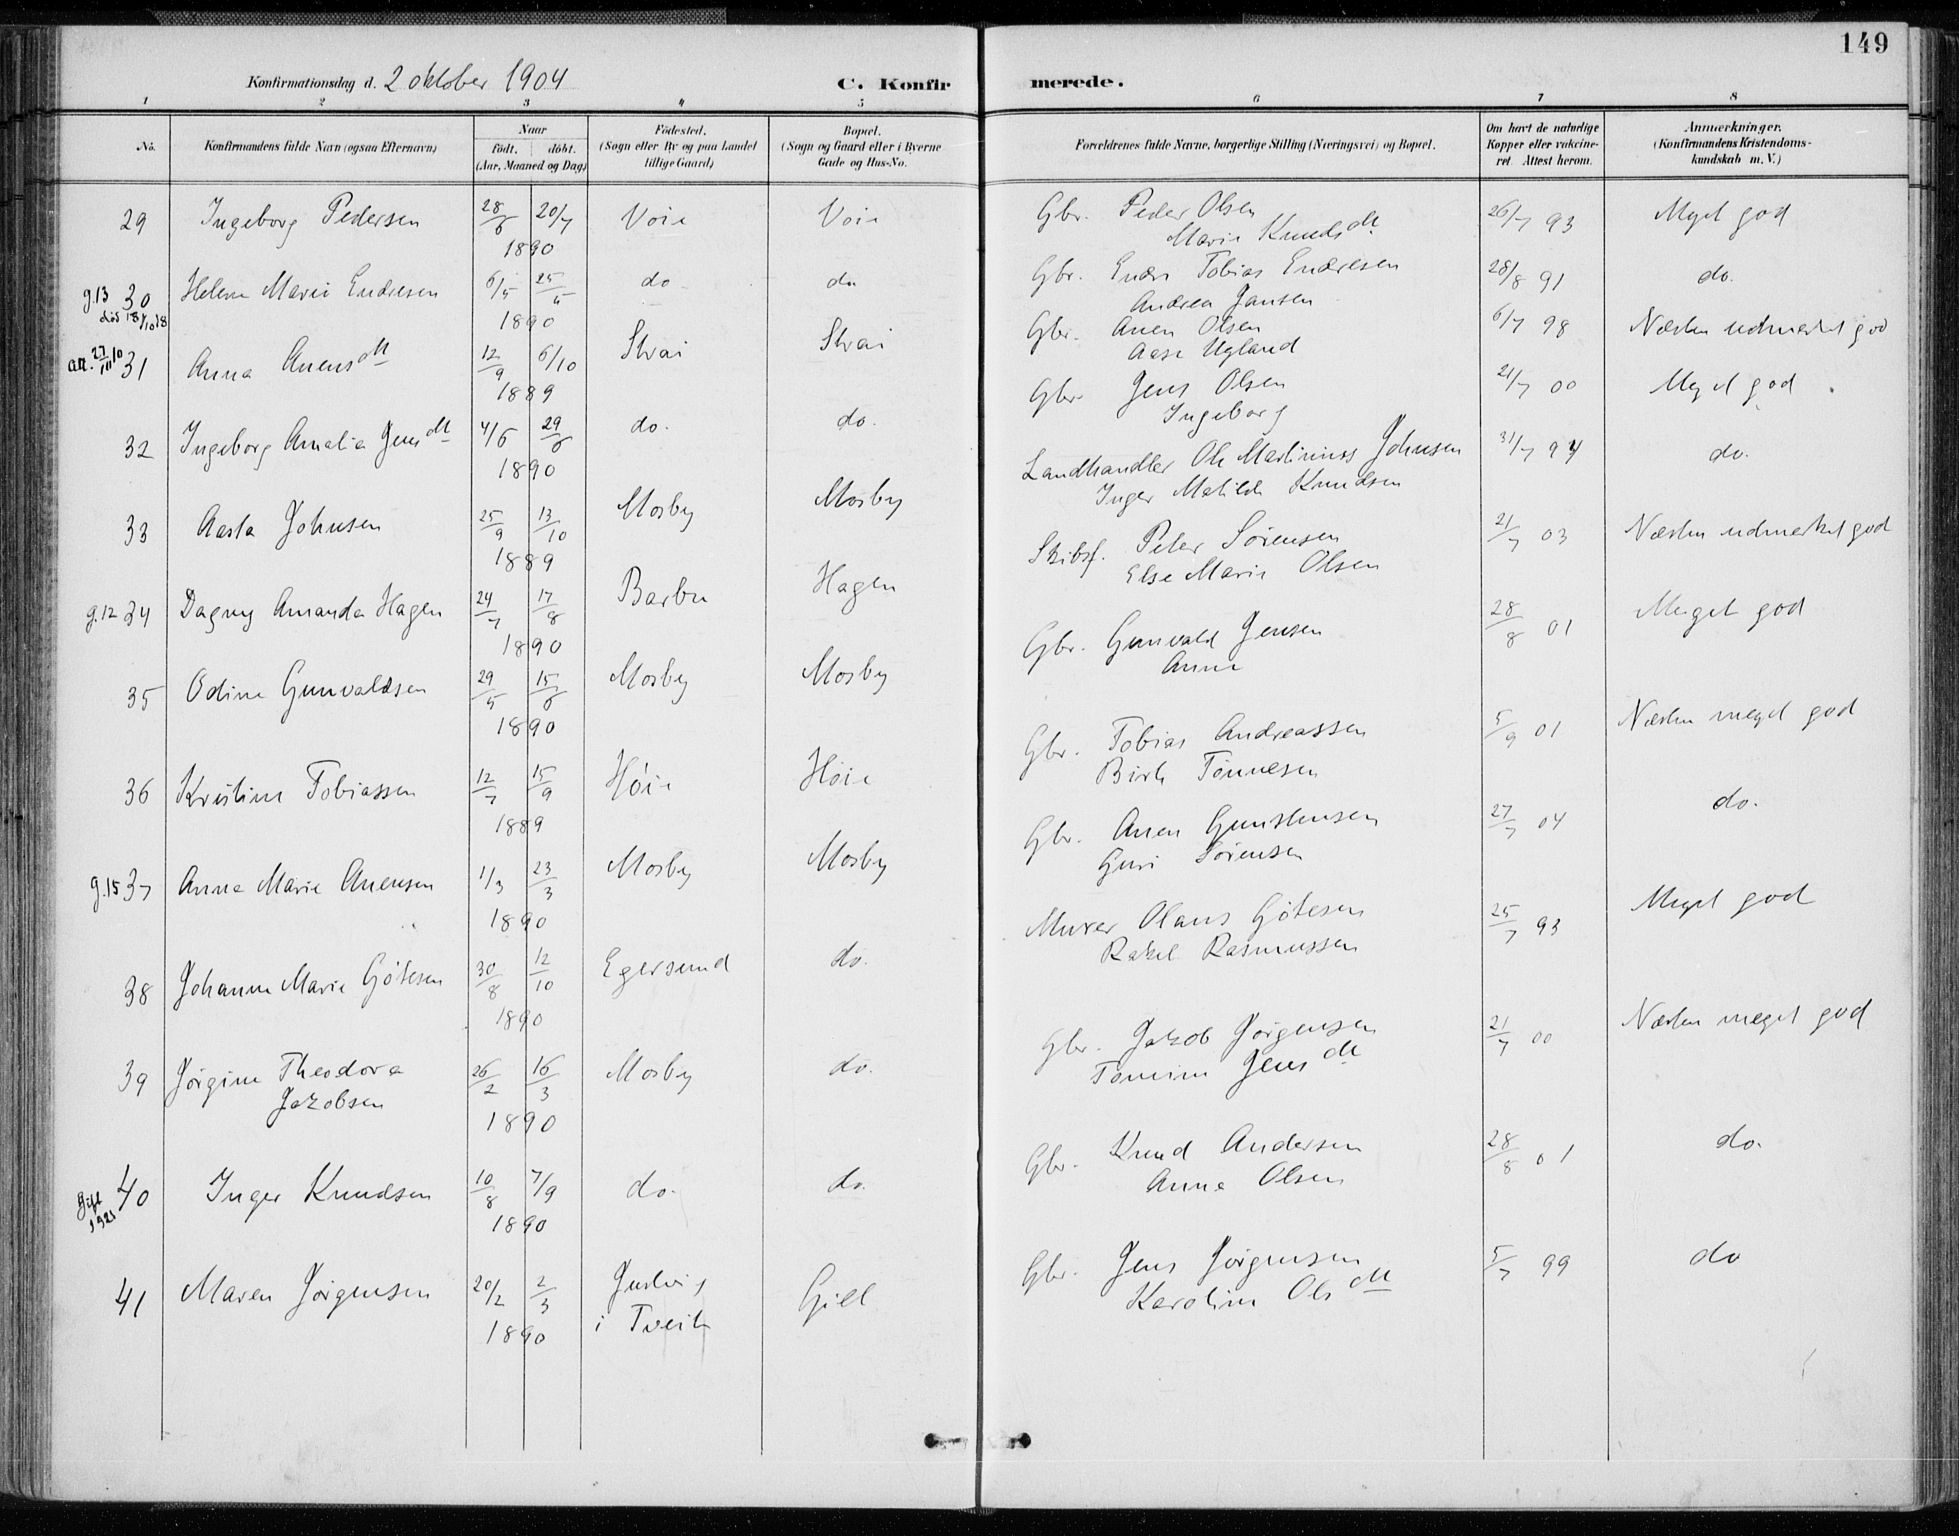 149
Konfirmationsdag d. 2 oktober 1904
C. Konfirmerede.
1 2 3 4 5 6 7 8
No.
Konfirmandens fulde Navn (ogsaa Efternavn)
Naar
født. døbt.
(Aar, Maaned og Dag)
Fødested.
(Sogn eller By og paa Landet
tillige Gaard)
Bopæl.
(Sogn og Gaard eller i Byerne
Gade og Hus-No.
Forældrenes fulde Navne, borgerlige Stilling (Næringsvei) og Bopæl.
Om havt de naturlige
Kopper eller vakcine-
ret. Attest herom.
Anmærkninger.
(Konfirmandens Kristendoms-
kundskab m. V.)
29 Ingeborg Pedersen 28/6 20/7 1890 Voie Voie Gbr. Peder Olsen 26/7 93 Meget god
Marie Knudsdtt
g.13 30 Helene Marie Endresen 6/5 25/5 1890 do do Gbr. Endre Tobias Endresen 28/8 91 do.
død 18/10 18
Andrea Jansen
att. 27/III 10 31 Anna Anensdtt 12/9 6/10 1889 Strai Strai Gbr. Anen Olsen 6/7 98 Næsten udmerket god
Aase Ugland
32 Ingeborg Amalia Jensdtt 4/6 29/6 1890 do. do. Gbr. Jens Olsen 21/7 00 Meget god
Ingeborg
33 Aasta Johnsen 25/9 13/10 1889 Mosby Mosby Landhandler Ole Martinius Johnsen 31/7 94 do.
Inger Matilde Knudsen
g.12 34 Dagny Amanda Hagen 24/7 17/8 1890 Barbu Hagen Skibsf. Peter Sørensen 21/7 03 Næsten udmerket god
Else Marie Olsen
35 Odine Gunvaldsen 29/5 15/6 1890 Mosby Mosby Gbr. Gunvald Jensen 28/8 01 Meget god
Anne
36 Kristine Tobiassen 12/7 15/9 1889 Høie Høie Gbr. Tobias Andreassen 5/9 01 Næsten meget god
Birte Tønnesen
g.15 37 Anna Marie Anensen 1/3 23/3 1890 Mosby Mosby Gbr. Anen Gunstensen 27/7 04 do.
Guri Sørensen
38 Johanne Marie Gøtesen 30/8 12/10 1890 Egersund do. Murer Olaus Gøtesen 25/7 93 Meget god
Rakel Rasmussen
39 Jørgine Theodora 26/2 16/3 1890 Mosby do. Gbr. Jakob Jørgensen 21/7 00 Næsten meget god
Jakobsen
Tomine Jensdtt
Gift 1925 40 Inger Knudsen 10/8 7/9 1890 do. do. Gbr. Knud Andersen 28/8 01 do.
Anne Olsen
41 Maren Jørgensen 20/2 2/3 1890 i Tveit Gill Gbr. Jens Jørgensen 5/7 99 do
Karoline Olsdtt